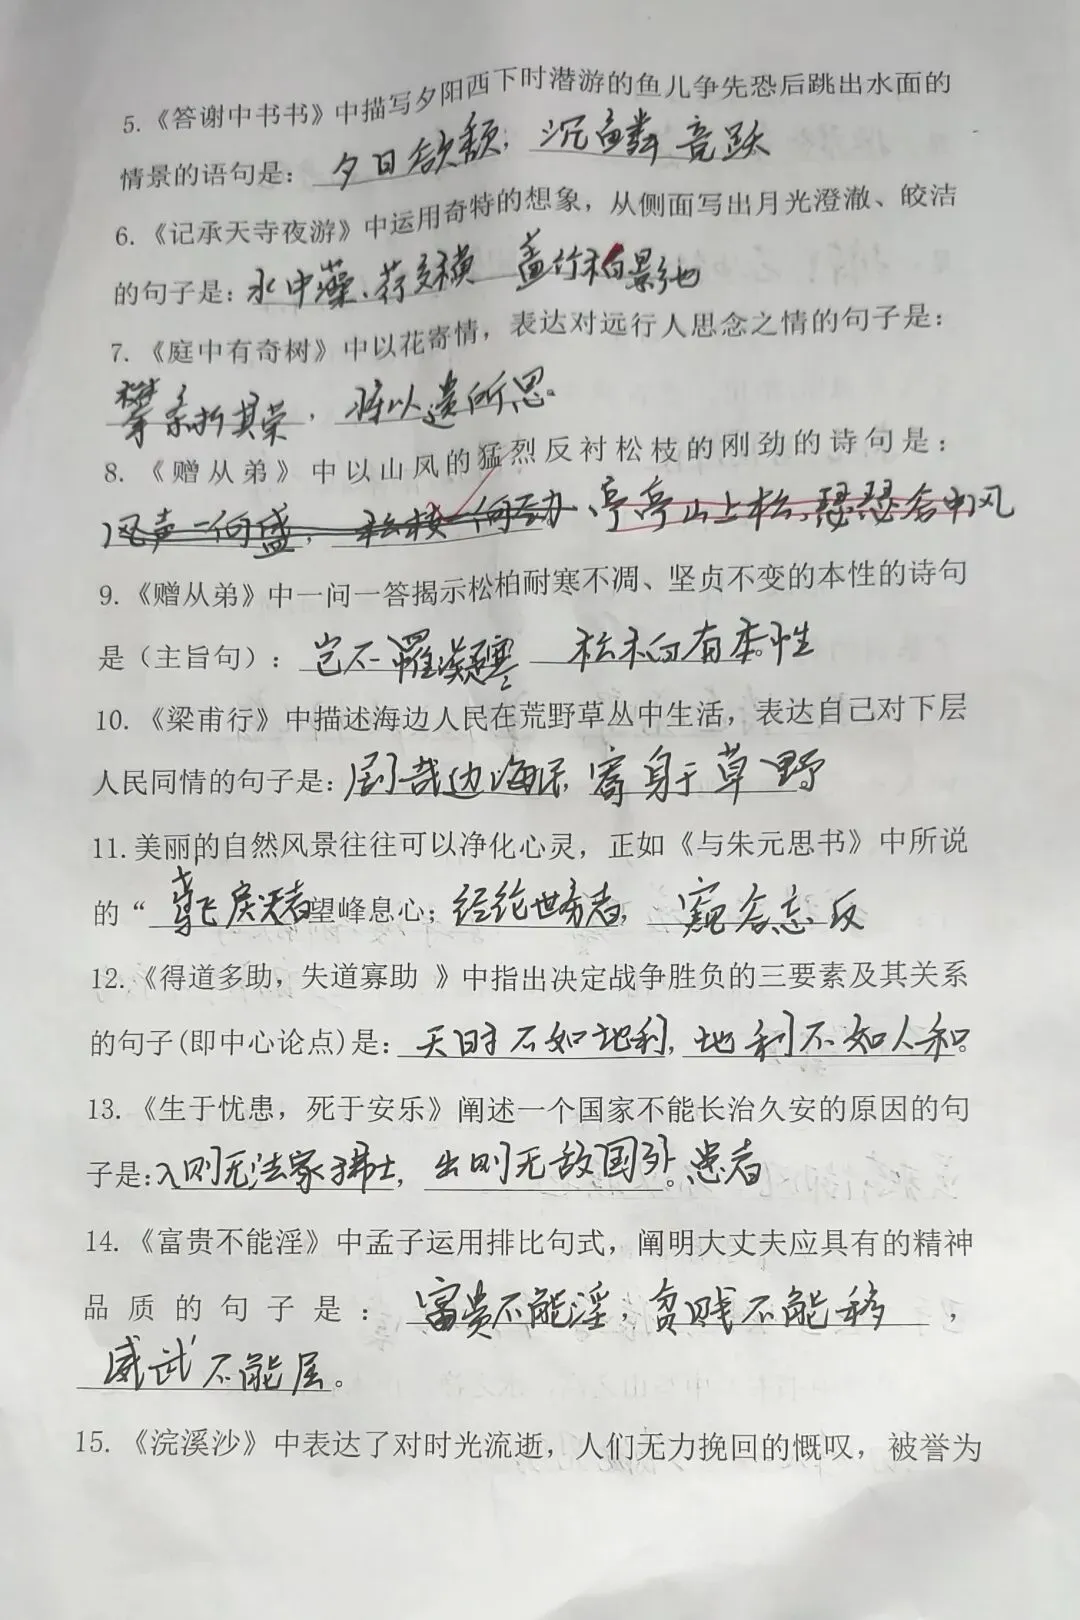 5.《答谢中书书》中描写夕阳西下时潜游的鱼儿争先恐后跳出水面的
情景的语句是：夕日欲颓，沉鳞竞跃
6.《记承天寺夜游》中运用奇特的想象，从侧面写出月光澄澈、皎洁
的句子是：水中藻、荇交横 盖竹柏影也
7.《庭中有奇树》中以花寄情，表达对远行人思念之情的句子是：
攀条折其荣，将以遗所思。
8.《赠从弟》中以山风的猛烈反衬松枝的刚劲的诗句是：
风声一何盛，松枝一何劲、亭亭山上松，瑟瑟谷中风
9.《赠从弟》中一问一答揭示松柏耐寒不凋、坚贞不变的本性的诗句
是（主旨句）：岂不罹凝寒 松柏有本性
10.《梁甫行》中描述海边人民在荒野草丛中生活，表达自己对下层
人民同情的句子是：剧哉边海民，寄身于草野
11.美丽的自然风景往往可以净化心灵，正如《与朱元思书》中所说
的“鸢飞戾天者望峰息心；经纶世务者，窥谷忘反
12.《得道多助，失道寡助 》中指出决定战争胜负的三要素及其关系
的句子(即中心论点)是：天时不如地利，地利不如人和。
13.《生于忧患，死于安乐》阐述一个国家不能长治久安的原因的句
子是：入则无法家拂士，出则无敌国外。患者
14.《富贵不能淫》中孟子运用排比句式，阐明大丈夫应具有的精神
品质的句子是：富贵不能淫，贫贱不能移，
威武不能屈。
15.《浣溪沙》中表达了对时光流逝，人们无力挽回的慨叹，被誉为